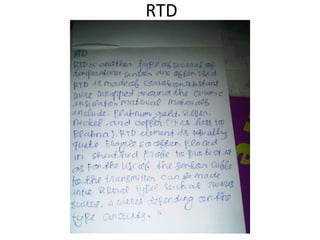 RTD
RTD
RTD is another type of sensors of
temperature sensor are often used
RTD is made of constant
wire wrapped around the ceramic
insulation material materials
include: Platinum, gold, silver,
Nickel, and copper is best to
RTD element is usually
quite fragile so often placed
in sheathed Probe to Protect it
as For the use of the sensor cable
to the transmitter can be made
into several types such as 2 wires
3 wires, 4 wires depending on the
type circuits.